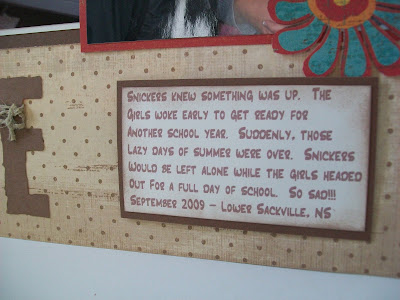 Snickers knew something was up. The
Girls woke early to get ready for
Another school year. Suddenly, those
Lazy days of summer were over. Snickers
Would be left alone while the girls headed
Out for a full day of school. So sad!!!
September 2009 – Lower Sackville, NS